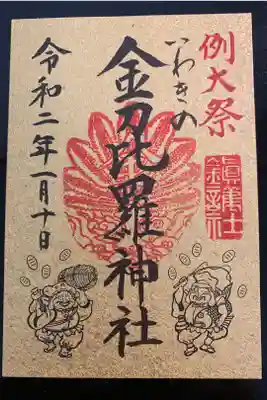 例大祭
いわきの
金刀比羅神社
令和二年一月十日